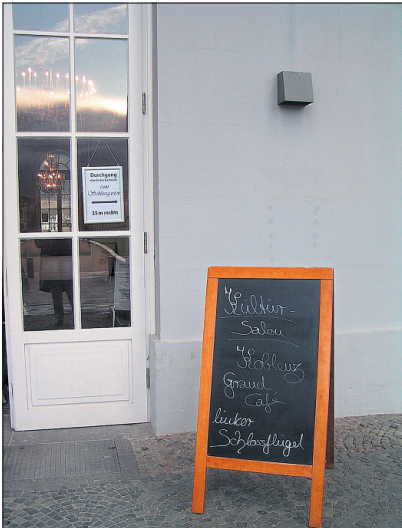 Durchgang
zum
Schlossgarten
25 m rechts
Kultur-
Salon
Koblenz
Grand
Café
linker
Schlossflügel